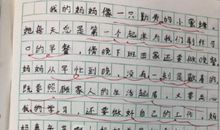 我的妈妈像一只勤劳的小蜜蜂，
她每天总是第一个起来为我们制作可
口的早餐，傍晚下班回家还要做晚餐。
妈妈从早忙到晚，没有一刻是歇着
既要照顾家人的生活起居，又要
我的学习，还要做好自己的工作，